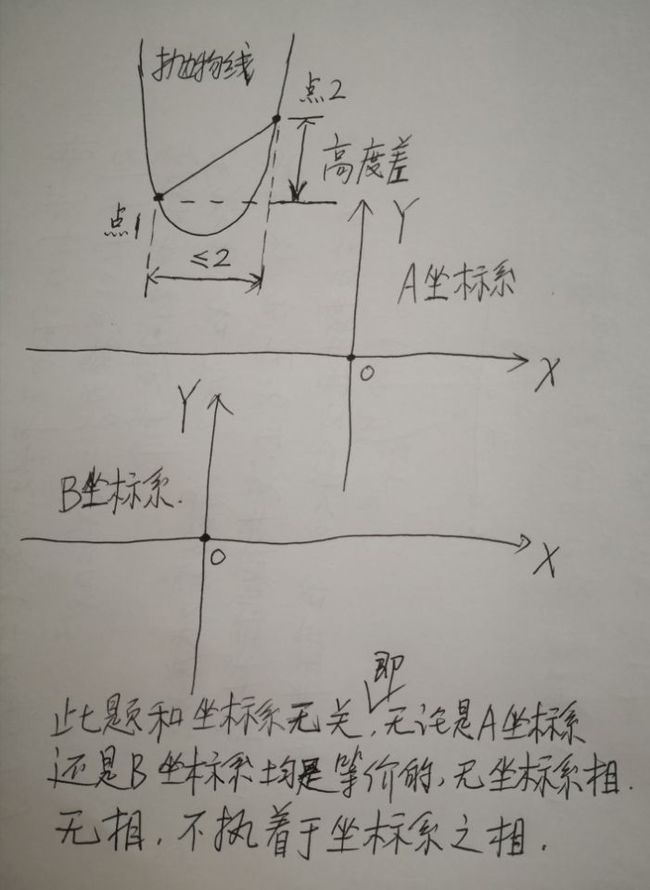 抛物线
点2
高度差
点1
≤2
Y
A坐标系
O
X
Y
B坐标系.
O
X
即
此题和坐标系无关,无论是A坐标系
还是B坐标系均是等价的,无坐标系相.
无相.不执着于坐标系之相.